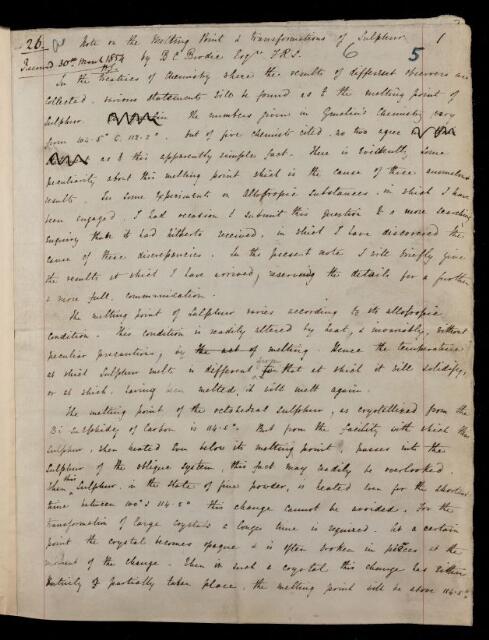 26. Note on the Melting Point & transformations of Sulphur 1
Received 30th March 1854 by B C Brodie Esqr. F.R.S. 6 5
In the treatises of Chemistry where the results of different observers are
collected. various statements will be found as to the melting point of
Sulphur. the numbers given in Gmelin's Chemistry vary
from 104.5° to 112.2°. but of five chemists cited, no two agree
as to this apparently simple fact. There is evidently some
peculiarity about this melting point which is the cause of these anomalous
results. In some experiments on Allotropic Substances, in which I have
been engaged, I had occasion to submit this question to a more searching
enquiry than it had hitherto received, in which I have discovered the
cause of these discrepancies. In the present note I will briefly give
the results at which I have arrived, reserving the details for a further
& more full, communication.
The melting point of Sulphur varies according to its allotropic
condition. This condition is readily altered by heat, & invariably, without
peculiar precautions, by the act of melting. Hence the temperature
at which Sulphur melts is different from that at which it will solidify,
or at which, having been melted, it will melt again.
The melting point of the octohedral Sulphur, as crystallized from the
Bi Sulphide of Carbon is 114.5°. But from the facility with which this
Sulphur, when heated even below its melting point, passes into the
Sulphur of the oblique system, this fact may readily be overlooked.
When this Sulphur, in the state of fine powder, is heated even for the shortest
time between 100° & 114.5° this change cannot be avoided. For the
transformation of large crystals a longer time is required. At a certain
point the crystal becomes opaque & is often broken in pieces at the
moment of the change. When in such a crystal this change has either
entirely or partially taken place, the melting point will be above 114.5°